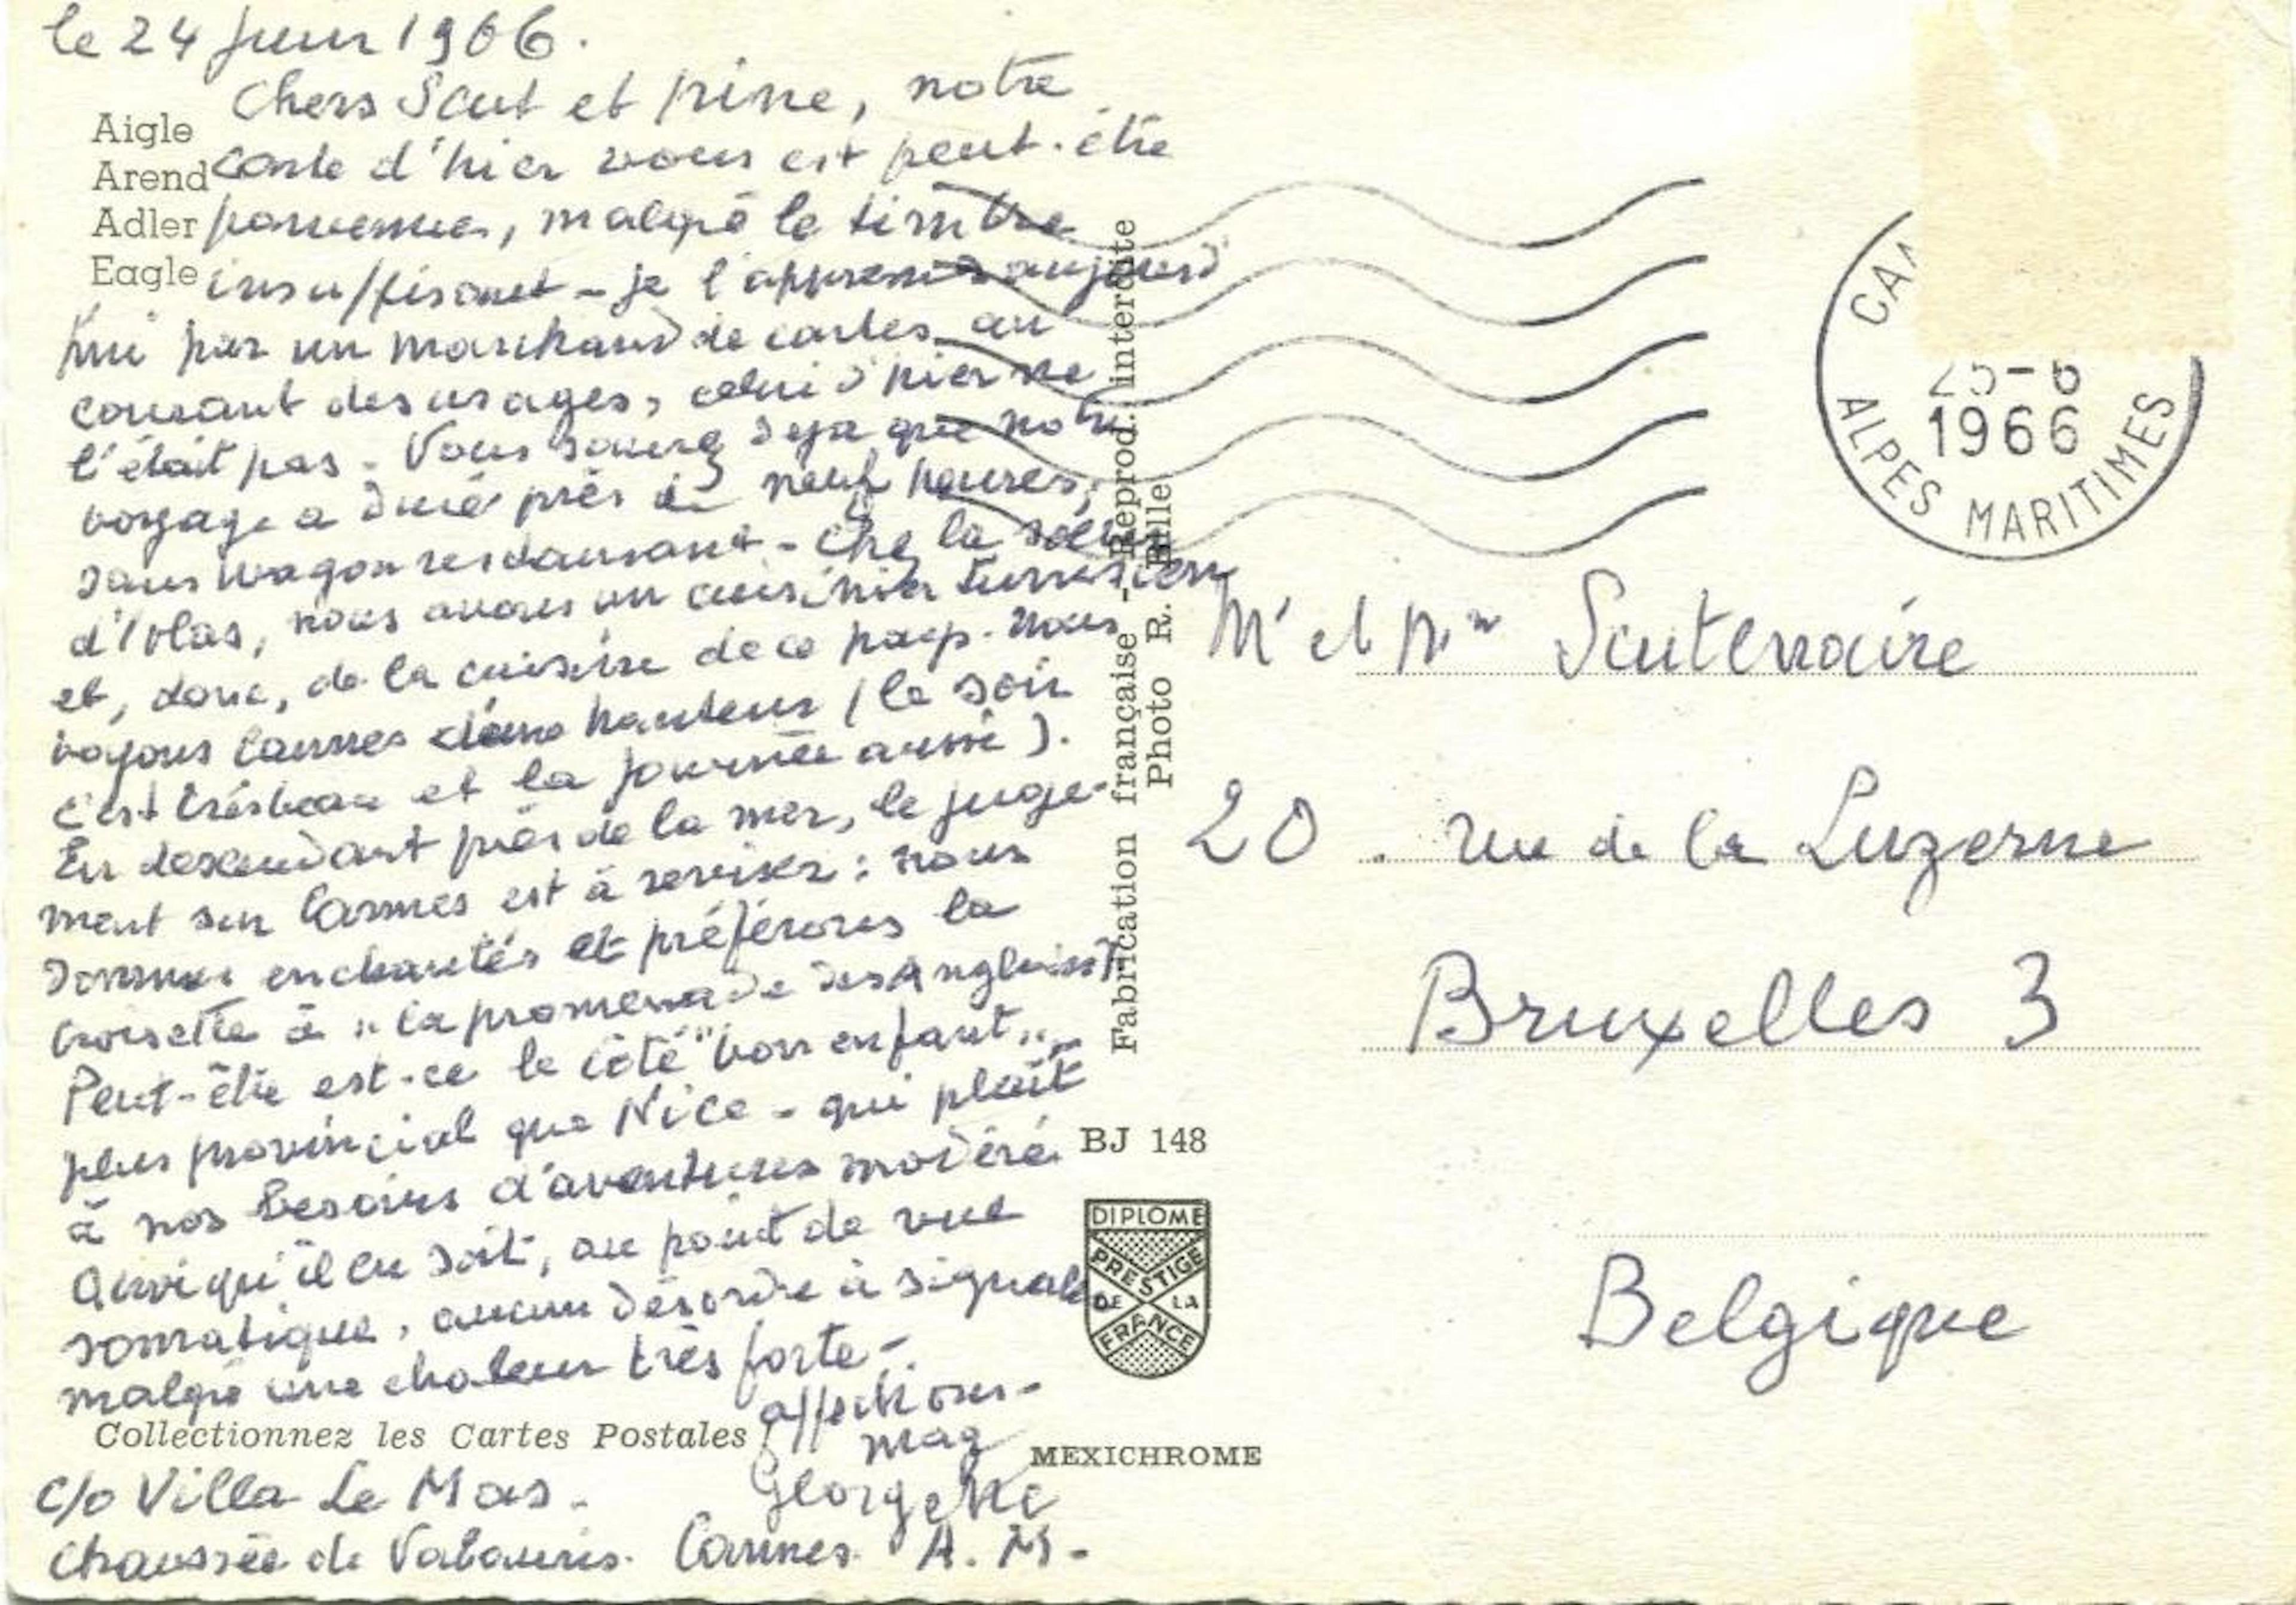 le 24 juin 1966.
Chers Scut et Irine, notre
carte d'hier vous est peut-être
parvenue, malgré le timbre
insuffisant - je l'apprends aujourd'
hui par un marchand de cartes au
courant des usages, celui d'hier ne
l'était pas. Vous savez déjà que notre
voyage a duré près de neuf heures,
sans wagon restaurant - Chez la sœur
d'Iolas, nous avons un cuisinier tunisien
et, donc, de la cuisine de ce pays. Nous
voyons Cannes d'une hauteur (le soir
c'est très beau et la journée aussi).
En descendant près de la mer, le juge-
ment sur Cannes est à reviser : nous
sommes enchantés et préférons la
Croisette à "la promenade des Anglais"
Peut-être est-ce le côté "bon enfant" -
plus provincial que Nice - qui plaît
à nos besoins d'aventures modéré.
Quoiqu'il en soit, au point de vue
somatique, aucun désordre à signaler
malgré une chaleur très forte -
affections -
mag
Georgette
c/o Villa Le Mas -
Chaussée de Valauris. Cannes. A. M. -
Aigle
Arend
Adler
Eagle
Collectionnez les Cartes Postales
Fabrication française - Reprod. interdite
Photo R. Bille
BJ 148
DIPLOME
PRESTIGE
DE LA
FRANCE
MEXICHROME
25-6
1966
ALPES MARITIMES
Mr et Mme Scutenaire
20. rue de la Luzerne
Bruxelles 3
Belgique